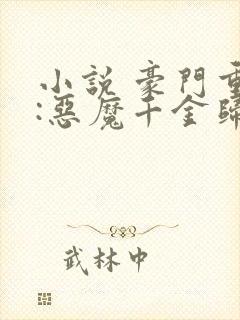 小說 豪門重
:惡魔千金歸
武林中